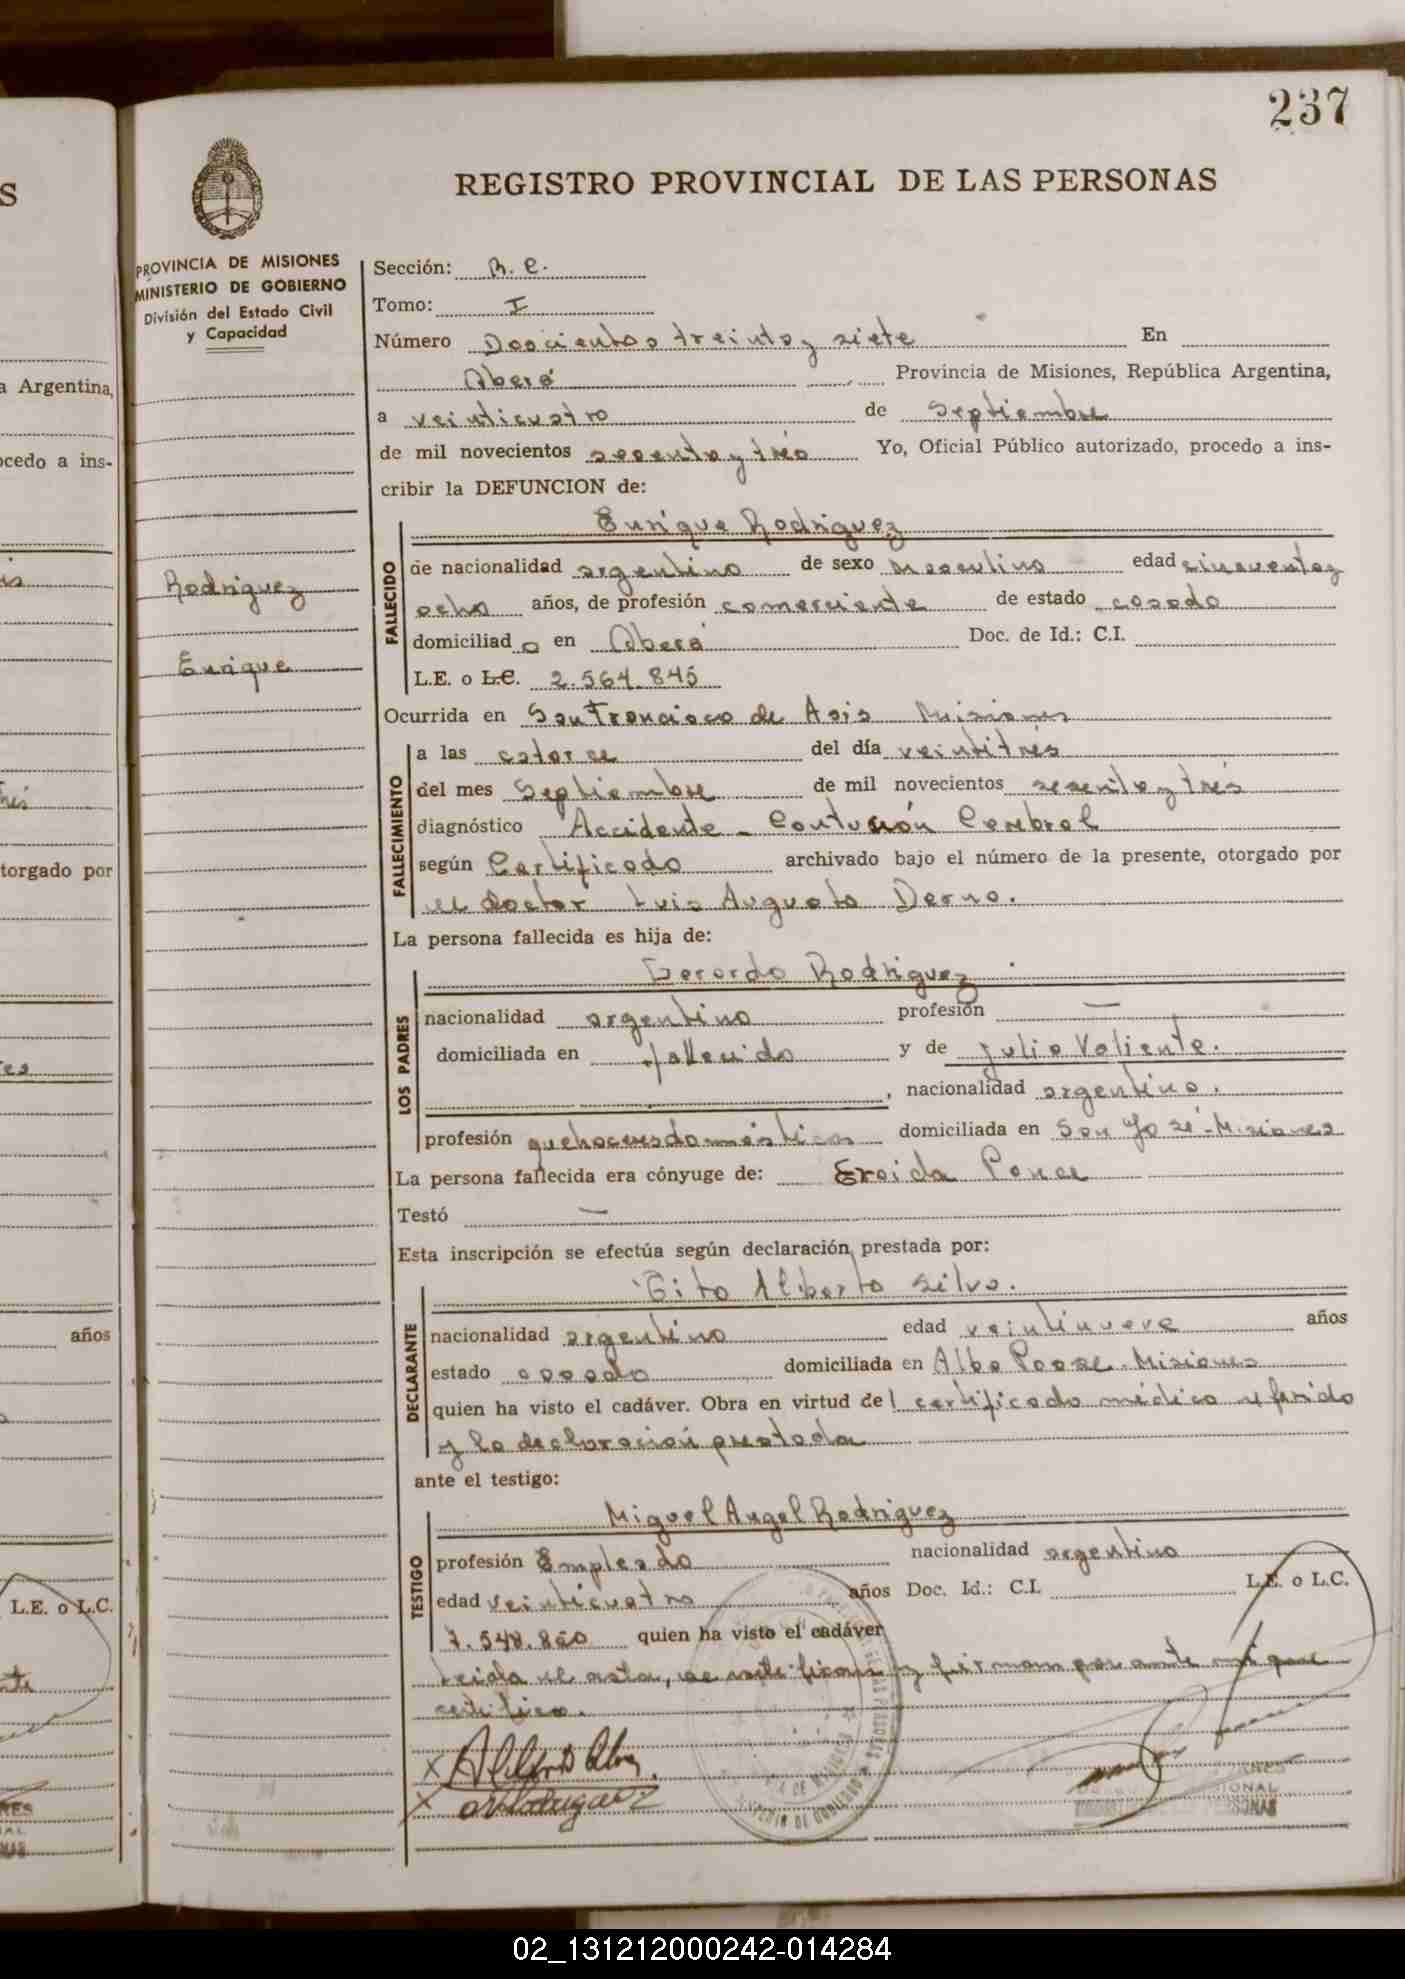 237
REGISTRO PROVINCIAL DE LAS PERSONAS
PROVINCIA DE MISIONES
MINISTERIO DE GOBIERNO
División del Estado Civil
y Capacidad
Rodriguez
Enrique
Sección: R. C.
Tomo: I
Número Doscientos treinta y siete En
Oberá Provincia de Misiones, República Argentina,
a veinticuatro de Septiembre
de mil novecientos sesenta y tres Yo, Oficial Público autorizado, procedo a ins-
cribir la DEFUNCION de:
Enrique Rodriguez
FALLECIDO
de nacionalidad argentino de sexo masculino edad cincuenta y
ocho años, de profesión comerciante de estado casado
domiciliado en Oberá Doc. de Id.: C.I.
L.E. o L.C. 2.564.845
Ocurrida en San Francisco de Asis Misiones
FALLECIMIENTO
a las catorce del día veintitrés
del mes Septiembre de mil novecientos sesenta y tres
diagnóstico Accidente - Contusión Cerebral
según Certificado archivado bajo el número de la presente, otorgado por
el doctor Luis Augusto Derna.
La persona fallecida es hija de:
LOS PADRES
Gerardo Rodriguez
nacionalidad argentino profesión —
domiciliada en fallecido y de Julia Valiente.
, nacionalidad argentina.
profesión quehaceres domésticos domiciliada en San José - Misiones
La persona fallecida era cónyuge de: Eroida Ponce
Testó —
Esta inscripción se efectúa según declaración prestada por:
DECLARANTE
Tito Aliberto Silva.
nacionalidad argentino edad veintinueve años
estado casado domiciliada en Alba Posse - Misiones
quien ha visto el cadáver. Obra en virtud del certificado médico referido
y la declaración prestada
ante el testigo:
TESTIGO
Miguel Angel Rodriguez
profesión Empleado nacionalidad argentino
edad veinticuatro años Doc. Id.: C.I. L.E. o L.C.
7.548.860 quien ha visto el cadáver
Leida el acta, se ratifican y firman por ante mi que
certifico.
02_131212000242-014284